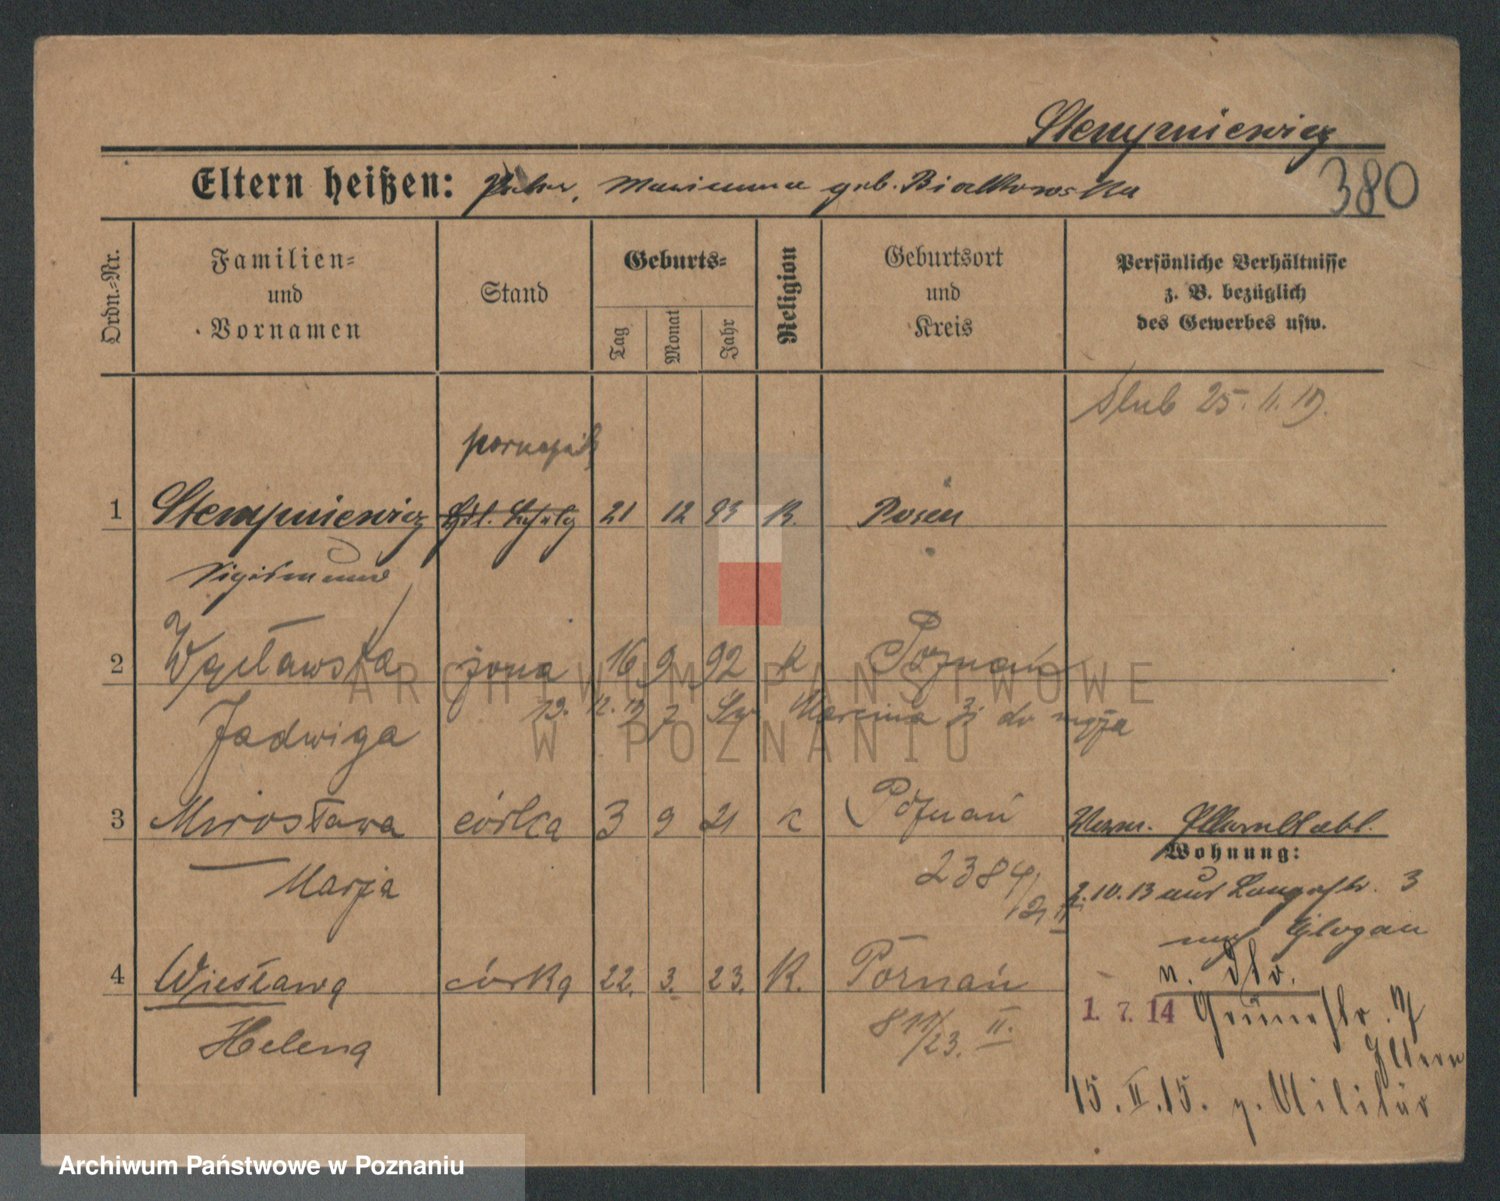 Stempniewicz
380
Eltern heißen: Peter, Marianna geb. Bialkowska
Ordn.-Nr.
Familien-
und
Vornamen
Stand
Geburts-
Tag
Monat
Jahr
Religion
Geburtsort
und
Kreis
Persönliche Verhältnisse
z. B. bezüglich
des Gewerbes usw.
Ślub 25. 11. 19.
1 Stempniewicz 21 12 93 K. Posen
Sigismund
2 Węcławska żona 16 9 92 K Poznań
Jadwiga
19. 12. 19 z Św. Marcina 31 do męża
3 Mirosława córka 3 9 21 K Poznań
Marja
2384/21 II
Wohnung:
2.10.13 aus Langestr. 3
nach Glogau
4 Wiesława córka 22. 3. 23. K. Poznań
Helena
811/23. II.
1. 7. 14 Grünestr. 7
Eltern
15. II. 15. z. Militär
ARCHIWUM PAŃSTWOWE
W POZNANIU
Archiwum Państwowe w Poznaniu